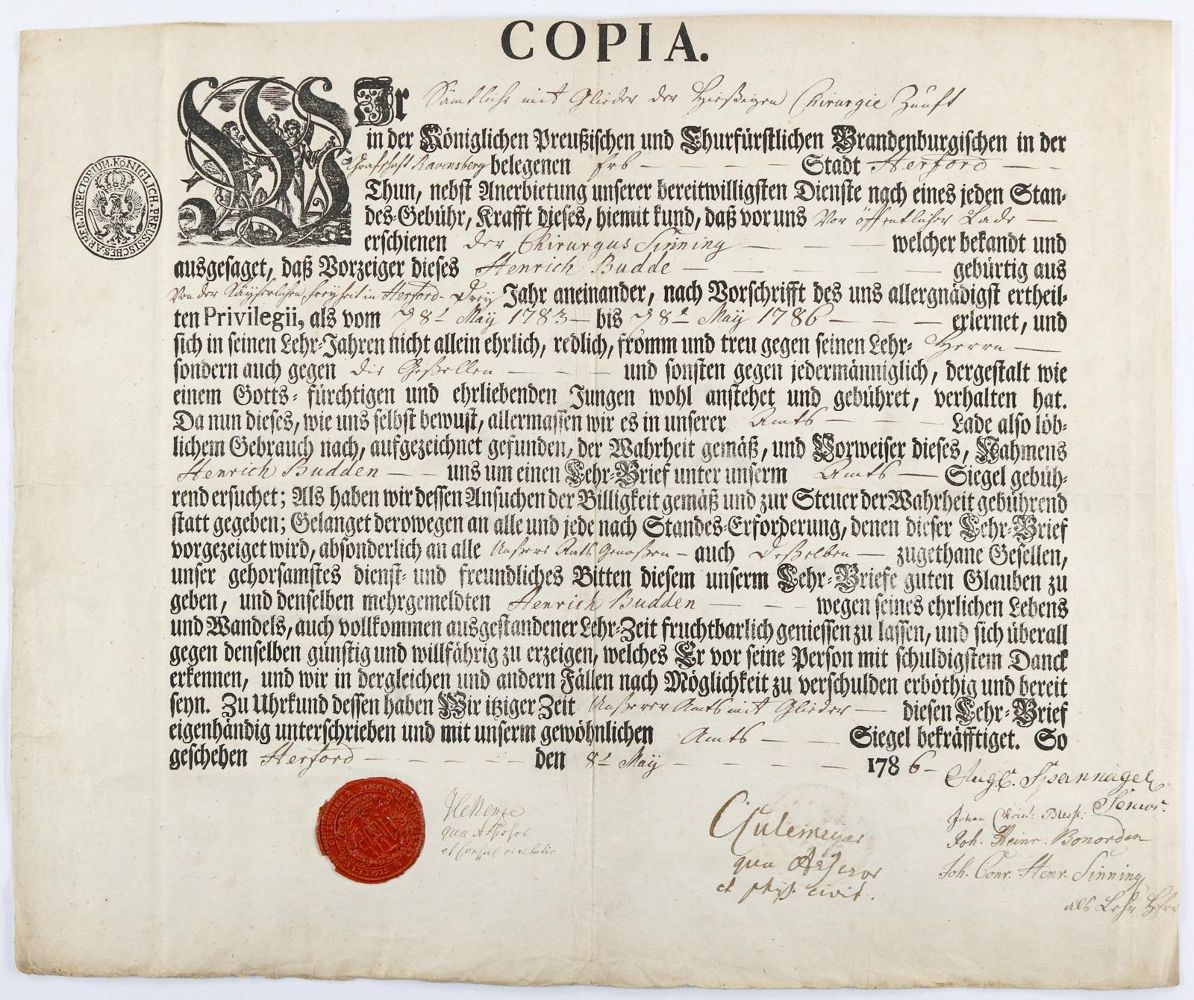 COPIA.
Wir Sämtliche mit Glieder der Hießigen Chirurgie Zunft
in der Königlichen Preußischen und Churfürstlichen Brandenburgischen in der
Graffschaft Ravensberg belegenen Stadt Herford
Thun, nebst Anerbietung unserer bereitwilligsten Dienste nach eines jeden Stan-
des-Gebühr, Krafft dieses, hiemit kund, daß vor uns Vor öffentlicher Lade
erschienen der Chirurgus Sinning welcher bekandt und
ausgesaget, daß Vorzeiger dieses Henrich Budde gebürtig aus
Von der Freyheit in Herford Drey Jahr aneinander, nach Vorschrifft des uns allergnädigst ertheil-
ten Privilegii, als vom 8t May 1783 bis 8t May 1786 erlernet, und
sich in seinen Lehr-Jahren nicht allein ehrlich, redlich, fromm und treu gegen seinen Lehr- Herrn
sondern auch gegen die Geßellen und sonsten gegen jedermänniglich, dergestalt wie
einem Gotts- fürchtigen und ehrliebenden Jungen wohl anstehet und gebühret, verhalten hat.
Da nun dieses, wie uns selbst bewust, allermassen wir es in unserer Amts Lade also löb-
lichem Gebrauch nach, aufgezeichnet gefunden, der Wahrheit gemäß, und Vorweiser dieses, Nahmens
Henrich Budden uns um einen Lehr-Brief unter unserm Amts Siegel gebüh-
rend ersuchet; Als haben wir dessen Ansuchen der Billigkeit gemäß und zur Steuer der Wahrheit gebührend
statt gegeben; Gelanget derowegen an alle und jede nach Standes-Erforderung, denen dieser Lehr-Brief
vorgezeiget wird, absonderlich an alle Unsere Amts Genoßen auch Deßelben zugethane Gesellen,
unser gehorsamstes dienst- und freundliches Bitten diesem unserm Lehr-Briefe guten Glauben zu
geben, und denselben mehrgemeldten Henrich Budden wegen seines ehrlichen Lebens
und Wandels, auch vollkommen ausgestandener Lehr-Zeit fruchtbarlich geniessen zu lassen, und sich überall
gegen denselben günstig und willfährig zu erzeigen, welches Er vor seine Person mit schuldigstem Danck
erkennen, und wir in dergleichen und andern Fällen nach Möglichkeit zu verschulden erböthig und bereit
seyn. Zu Uhrkund dessen haben Wir itziger Zeit Unserer Amts mit Glieder diesen Lehr-Brief
eigenhändig unterschrieben und mit unserm gewöhnlichen Amts Siegel bekräfftiget. So
geschehen Herford den 8t May 1786
Augt. Spannagel
Senior.
Johan Christ.
Joh. Heinr. Bonorden
Joh. Conr. Henr. Sinning
als Lehr Herr
Culemeyer
qua Assessor
et phys. civit.
qua Assessor
et Consul civitatis